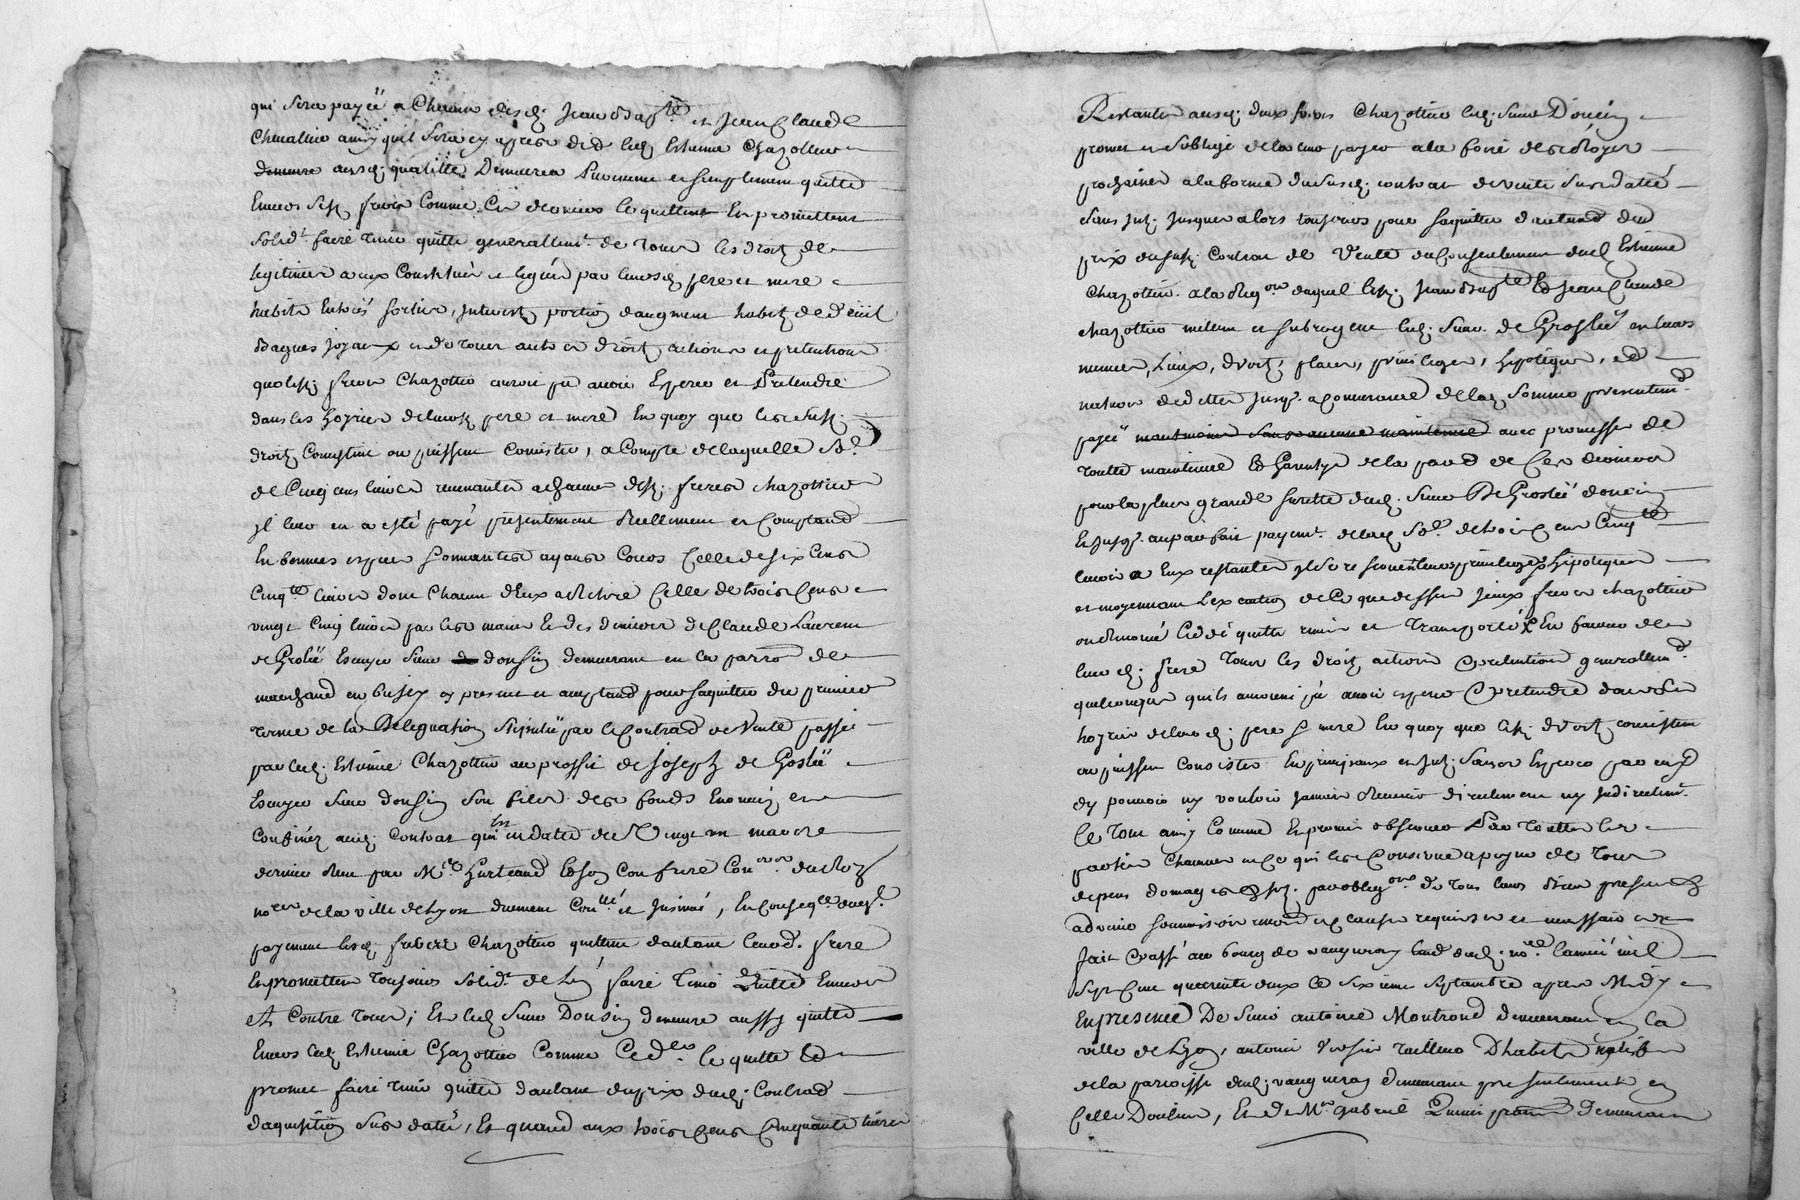 qui sera payée a Chacun desd. Jean Bapte et Jean Claude
Chazottier ainsy quil sera cy apres dit led. Estienne Chazottier
demeure ausd. qualitté Demeurera Purement et simplement quitte
Envers sesd. freres Comme Ces derniers le quittent En promettent
solidt. faire tenir quitte generallemt. de Tous les droits de
legitimes a eux Constitués et legués par leursd. pere et mere
habits pour portion daugment habits de deüil
Bagues joyaux et de tous autres droits actions et pretentions
que lesd. freres Chazottier auroient pu avoir Esperer et Pretendre
dans les hoyries de leursd. pere et mere En quoy que lesd. susd.
droits Consistent ou puissent Consister, a Compte de laquelle So.e
de Cinq cens livres revenantes a chacun desd. freres chazottier
jl leur en a esté payé presentement Reellement et Comptand
En bonnes especes sonnantes ayant Cours Celle de six Cens
Cinqte livres dont Chacun d'Eux a Retiré Celle de trois Cens
vingt Cinq livres par les mains Et des deniers de Claude Laurent
de Grolée Escuyer sieur de donsin demeurant en la parrosse de
marchand en bugey cy present et acceptand pour sacquitter du premier
terme de la Delegation stipulée par le Contrad de Vente passé
par led. Estienne Chazottier au proffit de Joseph de Groslée
Escuyer sieur donsin son frere des fonds Enoncés et
Confinés aud. Contrat qui est en datte du Vingt un mars
dernier Receu par Me. Hurtaud Et son Confrere Coners. du Roy
nores de la ville de Lyon duement Conllé et Insinué, En Conseqce. duquel
payement lesd. freres Chazottier quittent dautant leurd. frere
En promettent Toujours solidt. de Luy faire Tenir Quitte Envers
Et Contre Tous; Et led. sieur Donsin demeure aussy quitte
Envers led. Estienne Chazottier Comme Ced. le quitte Et
promet faire tenir quitte dautant du prix dud. Contrad
daquisition sus datté, Et quand aux trois Cens Cinquante livres
Restantes ausd. deux freres Chazottier led. sieur Doncin
promet et soblige de la leur payer a la foire des
prochaine a la forme du susd. contrat de vente sus datté
sans Int. jusques alors toujours pour sacquitter d'autant du
prix du susd. Contrat de Vente du Consentement dud. Estienne
Chazottier a la duquel lesd. Jean Bapte Et Jean Claude
chazottier mettent et subrogent led. sieur de Groslée en leurs
mesmes, Lieux, droits, places, privileges, hipoteques, et
nature de dettes jusq. a Concurrence de lad. Somme presentemt.
payée maintenir sans aucune maintenüe avec promesse de
toutte maintenüe Et Garentye de la part de Ces derniers
pour la plus grande surette dud. sieur De Groslée doncin
Et jusq. au parfait payemt. de lad. So.e de trois Cens Cinqte
livres a Eux restantes jls se reserventleurs privileges & hipoteques
et moyennant L'exécution de Ce que dessus jceux freres chazottier
ont Remis Cedé quitté remis et Transporté En faveur de
leurd. frere Tous les droits actions & pretentions generallemt.
quelconques quils auroient pu avoir esperer & pretendre dans les
hoyries de leursd. pere & mere En quoy que lesd. droits consistent
ou puissent Consister En principaux et Int. sans Espoir par eux
dy pouvoir ny vouloir jamais Revenir directement ny Indirectemt.
Le Tout ainsy Comme En promis observer Par Touttes les
parties Chacunes en Ce qui les Concerne a peyne de Tous
depens domages & Int. par obligons. de tous leurs biens presents &
advenir soumissions renonciations & clauses requises et necessaires
fait & passé au bourg de vaugneray Etude dud. nore. Lannée mil
Sept Cent quarante deux Le sixieme septembre apres Midy
En presence De sieur antoine Montrond demeurant en la
ville de Lyon, antoine Versin tailleur D'habits natif
de la paroisse dud. vaugneray demeurant presentement en
Celle Doulins, Et de Mre. gabriel demeurant